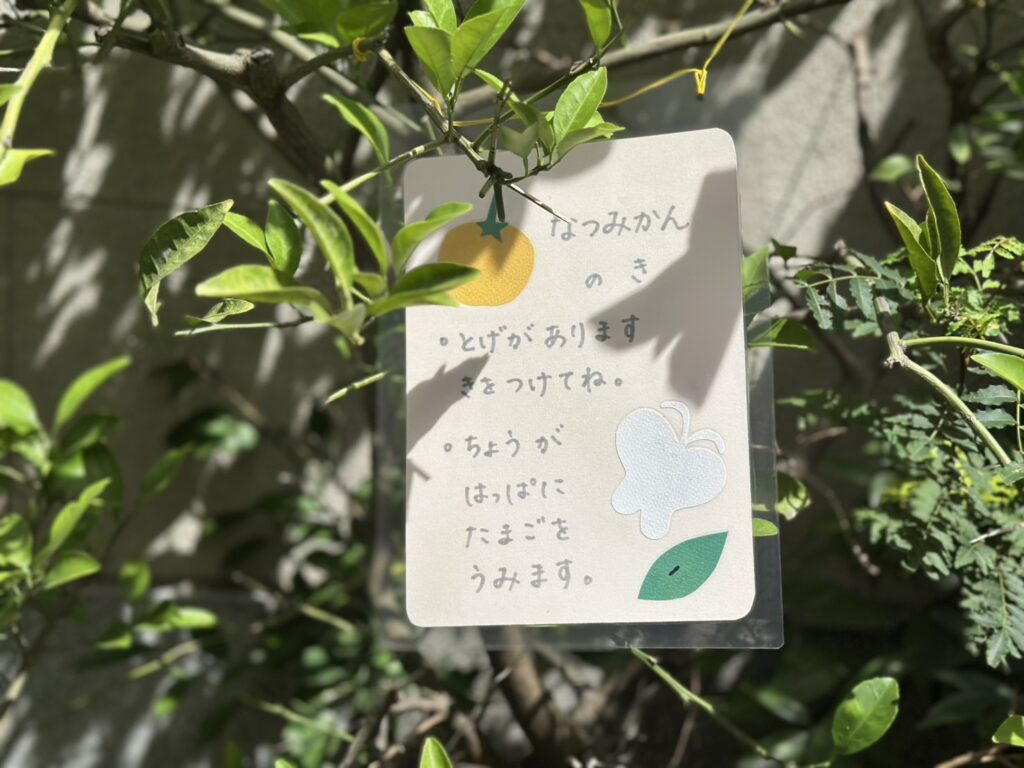 なつみかん
のき
・とげがあります
きをつけてね。
・ちょうが
はっぱに
たまごを
うみます。